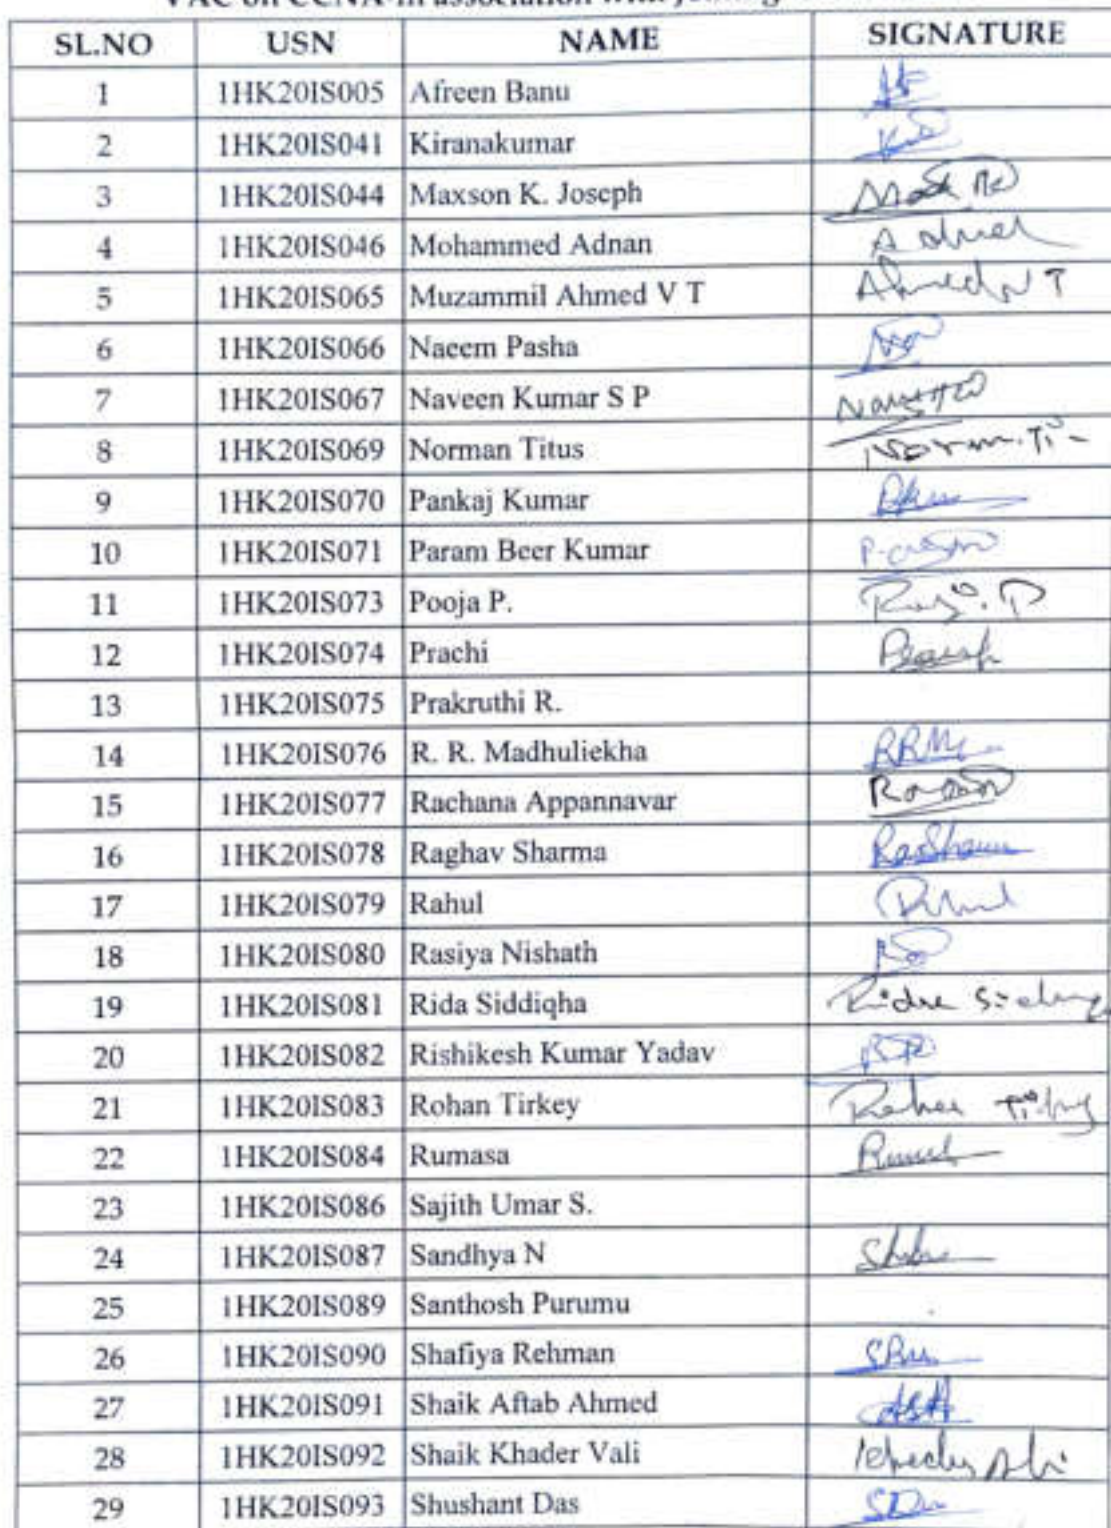 VAC on CCNA in association with
SL.NO USN NAME SIGNATURE
1 1HK20IS005 Afreen Banu
2 1HK20IS041 Kiranakumar
3 1HK20IS044 Maxson K. Joseph
4 1HK20IS046 Mohammed Adnan
5 1HK20IS065 Muzammil Ahmed V T
6 1HK20IS066 Naeem Pasha
7 1HK20IS067 Naveen Kumar S P
8 1HK20IS069 Norman Titus
9 1HK20IS070 Pankaj Kumar
10 1HK20IS071 Param Beer Kumar
11 1HK20IS073 Pooja P.
12 1HK20IS074 Prachi
13 1HK20IS075 Prakruthi R.
14 1HK20IS076 R. R. Madhuliekha
15 1HK20IS077 Rachana Appannavar
16 1HK20IS078 Raghav Sharma
17 1HK20IS079 Rahul
18 1HK20IS080 Rasiya Nishath
19 1HK20IS081 Rida Siddiqha
20 1HK20IS082 Rishikesh Kumar Yadav
21 1HK20IS083 Rohan Tirkey
22 1HK20IS084 Rumasa
23 1HK20IS086 Sajith Umar S.
24 1HK20IS087 Sandhya N
25 1HK20IS089 Santhosh Purumu
26 1HK20IS090 Shafiya Rehman
27 1HK20IS091 Shaik Aftab Ahmed
28 1HK20IS092 Shaik Khader Vali
29 1HK20IS093 Shushant Das